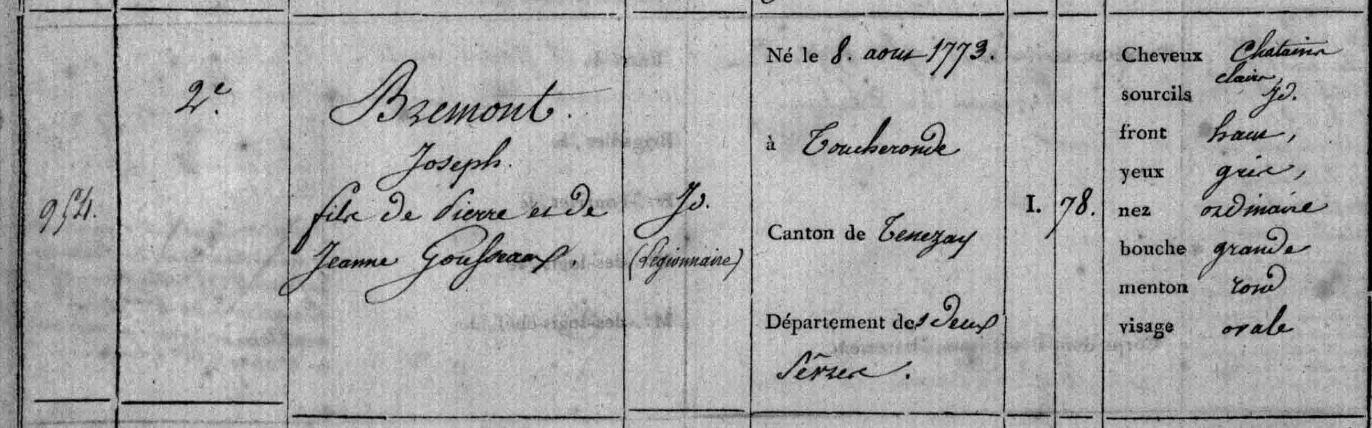 954.
2e.
Bremont.
Joseph.
fils de Pierre et de
Jeanne Gousseaux.
Id.
(Légionnaire)
Né le 8. aout 1773.
à Toucheronde
Canton de Tenezay
Département des deux
Sêvres.
I. 78.
Cheveux Chatains
clairs,
sourcils Id.
front haut,
yeux gris,
nez ordinaire
bouche grande
menton rond
visage ovale